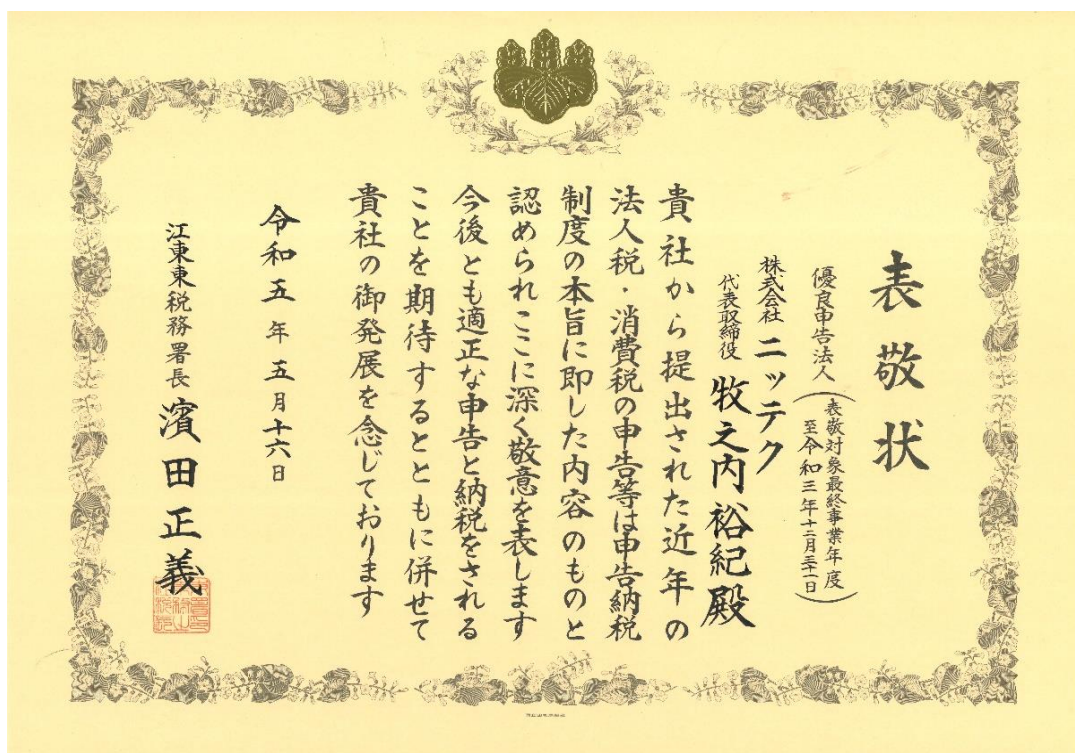 表敬状
優良申告法人
(表敬対象最終事業年度
至令和三年十二月三十一日)
株式会社 ニッテク
代表取締役 牧之内裕紀殿
貴社から提出された近年の
法人税・消費税の申告等は申告納税
制度の本旨に即した内容のものと
認められここに深く敬意を表します
今後とも適正な申告と納税をされる
ことを期待するとともに併せて
貴社の御発展を念じております
令和五年五月十六日
江東東税務署長 濱田正義